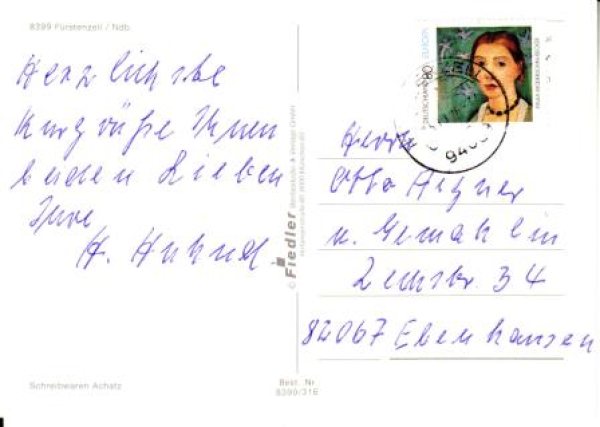 8399 Fürstenzell / Ndb
Herzlichste
Kurgrüße Ihnen
beiden Lieben
Ihre
H.
© Fiedler
DEUTSCHLAND 80 EUROPA
PAULA MODERSOHN-BECKER
Herrn
Otto
u. Gemahlin
Zechstr. 34
82067 Ebenhausen
Schreibwaren Achatz
Best. Nr.
8399/316